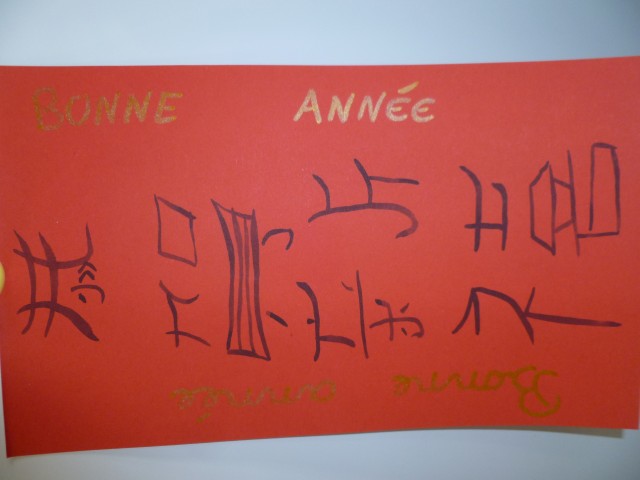 BONNE ANNÉE
恭賀新禧
Bonne année